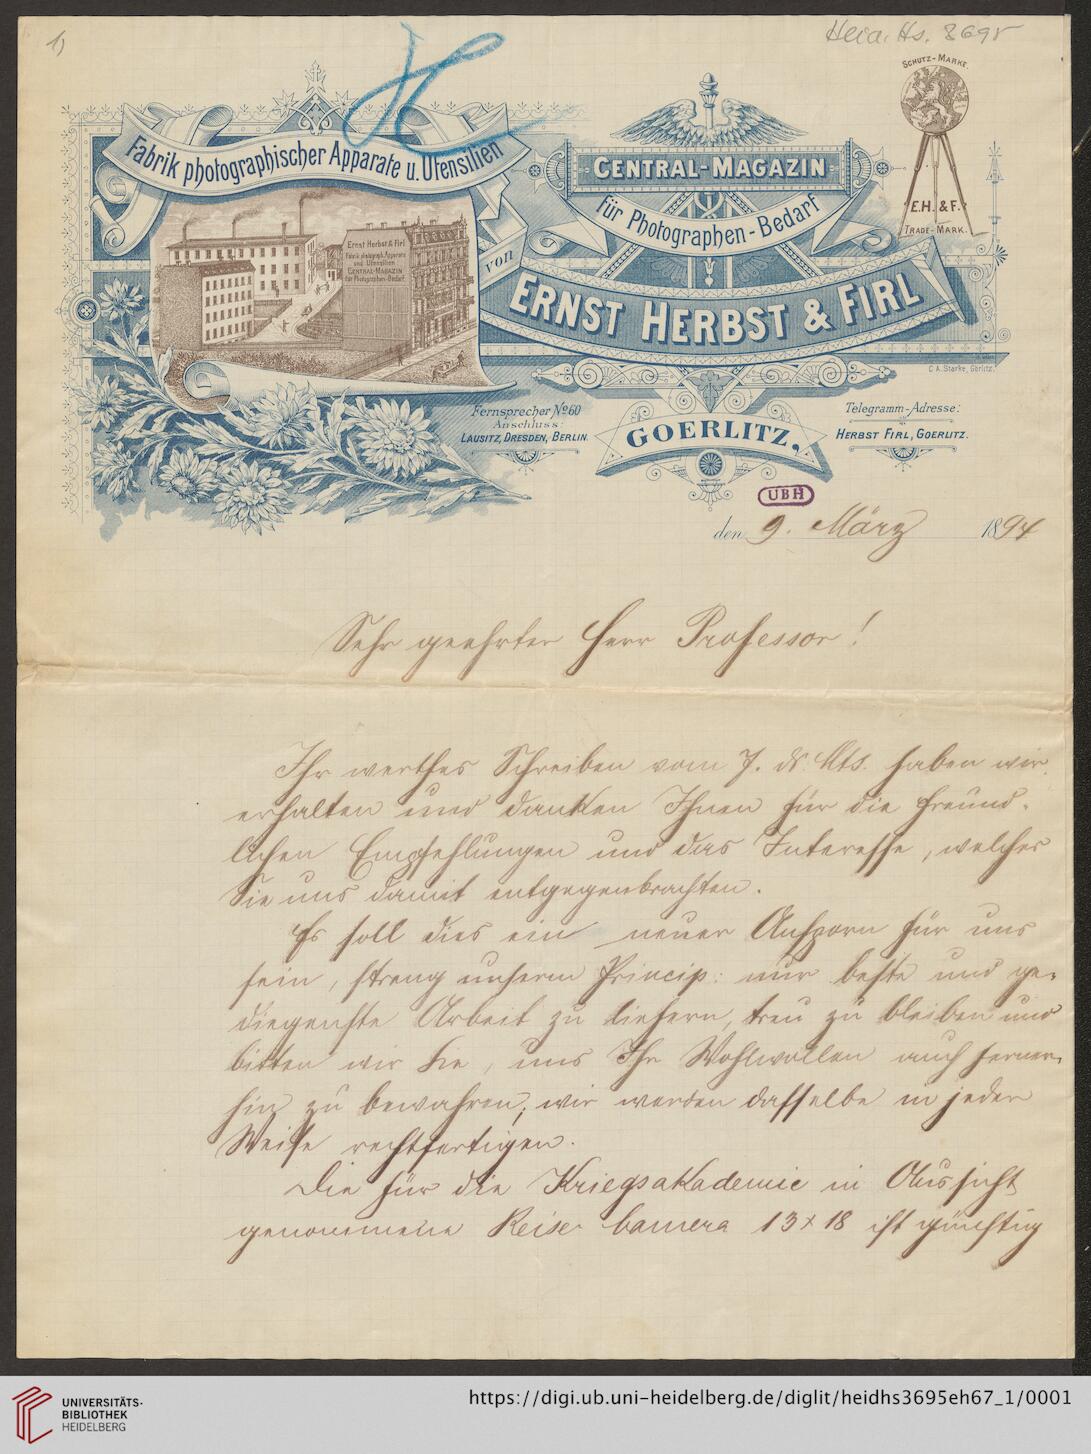 1)
Heid. Hs. 3695
Schutz-Marke.
E.H. & F.
Trade-Mark.
Fabrik photographischer Apparate u. Utensilien
Ernst Herbst & Firl
Fabrik photograph. Apparate
und Utensilien
Central-Magazin
für Photographen-Bedarf
von
Central-Magazin
für Photographen-Bedarf
Ernst Herbst & Firl
C.A. Starke, Görlitz.
Fernsprecher No 60
Anschluss:
Lausitz, Dresden, Berlin.
Goerlitz.
Telegramm-Adresse:
Herbst Firl, Goerlitz.
UBH
den 9. März 1894
Sehr geehrter Herr Professor!
Ihr werthes Schreiben vom 7. ds. Mts. haben wir
erhalten und danken Ihnen für die freund-
lichen Empfehlungen und das Interesse, welches
Sie uns damit entgegenbrachten.
Es soll dies ein neuer Ansporn für uns
sein, streng unserm Princip: nur beste und ge-
diegenste Arbeit zu liefern, treu zu bleiben und
bitten wir Sie, uns Ihr Wohlwollen auch ferner-
hin zu bewahren; wir werden dasselbe in jeder
Weise rechtfertigen.
Die für die Kriegsakademie in Aussicht
genommene Reise-Camera 13x18 ist günstig
UNIVERSITÄTS-
BIBLIOTHEK
HEIDELBERG
https://digi.ub.uni-heidelberg.de/diglit/heidhs3695eh67_1/0001